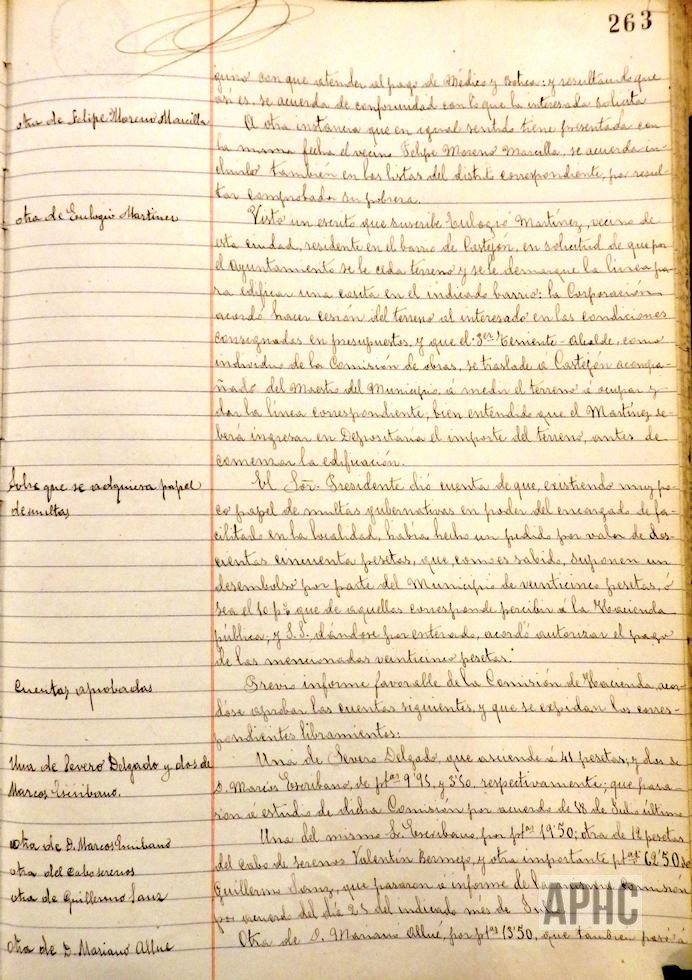 263
guno con que atender al pago de Médico y Botica: y resultando que
así es, se acuerda de conformidad con lo que la interesada solicita
otra de Felipe Moreno Marcilla
A otra instancia que en igual sentido tiene presentada con
la misma fecha el vecino Felipe Moreno Marcilla, se acuerda in-
cluirlo también en las listas del distrito correspondiente, por resul-
tar comprobada su pobreza.
otra de Eulogio Martínez
Visto un escrito que suscribe Eulogio Martínez, vecino de
esta ciudad, residente en el barrio de Castejón, en solicitud de que por
el Ayuntamiento se le ceda terreno y se le demarque la línea pa-
ra edificar una casita en el indicado barrio: la Corporación
acordó hacer cesión del terreno al interesado en las condiciones
consignadas en presupuestos, y que el 3er Teniente-Alcalde, como
individuo de la Comisión de obras, se traslade a Castejón acompa-
ñado del Maestro del Municipio, á medir el terreno á ocupar y
dar la línea correspondiente, bien entendido que el Martínez de-
berá ingresar en Depositaría el importe del terreno, antes de
comenzar la edificación.
Sobre que se adquiera papel
de multas
El Sor. Presidente dió cuenta de que, existiendo muy po-
co papel de multas gubernativas en poder del encargado de fa-
cilitarlo en la localidad, había hecho un pedido por valor de dos-
cientas cincuenta pesetas, que, como es sabido, suponen un
desembolso por parte del Municipio de veinticinco pesetas, ó
sea el 10 p% que de aquellas corresponde percibir á la Hacienda
pública; y S.S. dándose por enterado, acordó autorizar el pago
de las mencionadas veinticinco pesetas.
Cuentas aprobadas
Previo informe favorable de la Comisión de Hacienda, acor-
dóse aprobar las cuentas siguientes, y que se expidan los corres-
pondientes libramientos:
Una de Severo Delgado y dos de
Marcos Escribano.
Una de Severo Delgado, que asciende á 41 pesetas; y dos de
D. Marcos Escribano, de ptas 9'95, y 3'50, respectivamente; que pasa-
ron á estudio de dicha Comisión por acuerdo de 18 de Julio último
otra de D. Marcos Escribano
otra del Cabo serenos
otra de Guillermo Sanz
Una del mismo S. Escribano, por ptas 19'50; otra de 12 pesetas
del Cabo de serenos Valentín Bermejo, y otra importante ptas 62'50 de
Guillermo Sanz, que pasaron á informe de la misma Comisión
por acuerdo del día 25 del indicado mes de
otra de D. Mariano Allué
Otra de D. Mariano Allué, por ptas 13'50, que también pasó á
APHC